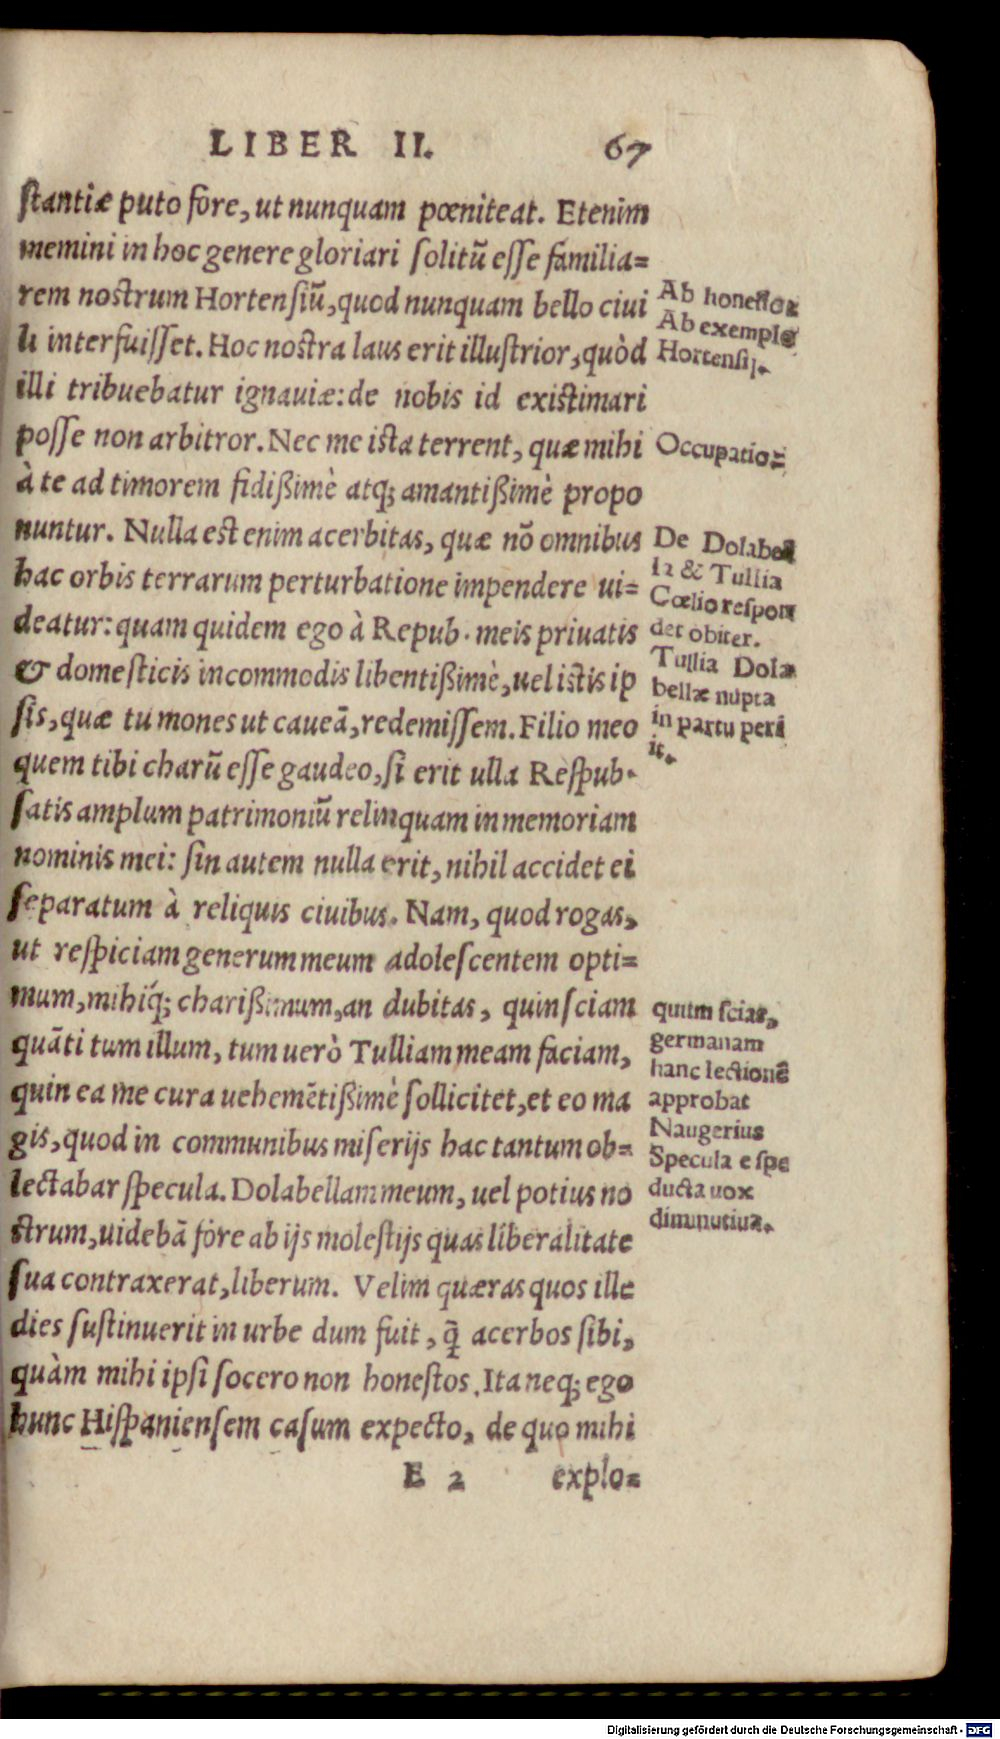 LIBER II. 67
stantiæ puto fore, ut nunquam pœniteat. Etenim
memini in hoc genere gloriari solitũ esse familia=
rem nostrum Hortensiũ, quod nunquam bello ciui
li interfuisset. Hoc nostra laus erit illustrior, quòd
illi tribuebatur ignauiæ: de nobis id existimari
posse non arbitror. Nec me ista terrent, quæ mihi
à te ad timorem fidißimè atq; amantißimè propo
nuntur. Nulla est enim acerbitas, quæ nõ omnibus
hac orbis terrarum perturbatione impendere ui=
deatur: quam quidem ego à Repub. meis priuatis
& domesticis incommodis libentißimè, uel istis ip
sis, quæ tu mones ut caueã, redemissem. Filio meo
quem tibi charũ esse gaudeo, si erit ulla Respub.
satis amplum patrimoniũ relinquam in memoriam
nominis mei: sin autem nulla erit, nihil accidet ei
separatum à reliquis ciuibus. Nam, quod rogas,
ut respiciam generum meum adolescentem opti=
mum, mihiq́; charißimum, an dubitas, quin sciam
quãti tum illum, tum uerò Tulliam meam faciam,
quin ea me cura uehemẽtißimè sollicitet, et eo ma
gis, quod in communibus miserijs hac tantum ob=
lectabar specula. Dolabellam meum, uel potius no
strum, uidebã fore ab ijs molestijs quas liberalitate
sua contraxerat, liberum. Velim quæras quos ille
dies sustinuerit in urbe dum fuit, q̃ acerbos sibi,
quàm mihi ipsi socero non honestos. Ita neq; ego
hunc Hispaniensem casum expecto, de quo mihi
E 2 explo=
Ab honesto.
Ab exemplo
Hortensij.
Occupatio.
De Dolabel
la & Tullia
Cœlio respon
det obiter.
Tullia Dola
bellæ nupta
in partu peri
it.
quum scias,
germanam
hanc lectionẽ
approbat
Naugerius
Specula e spe
ducta uox
diminutiua.
Digitalisierung gefördert durch die Deutsche Forschungsgemeinschaft - DFG